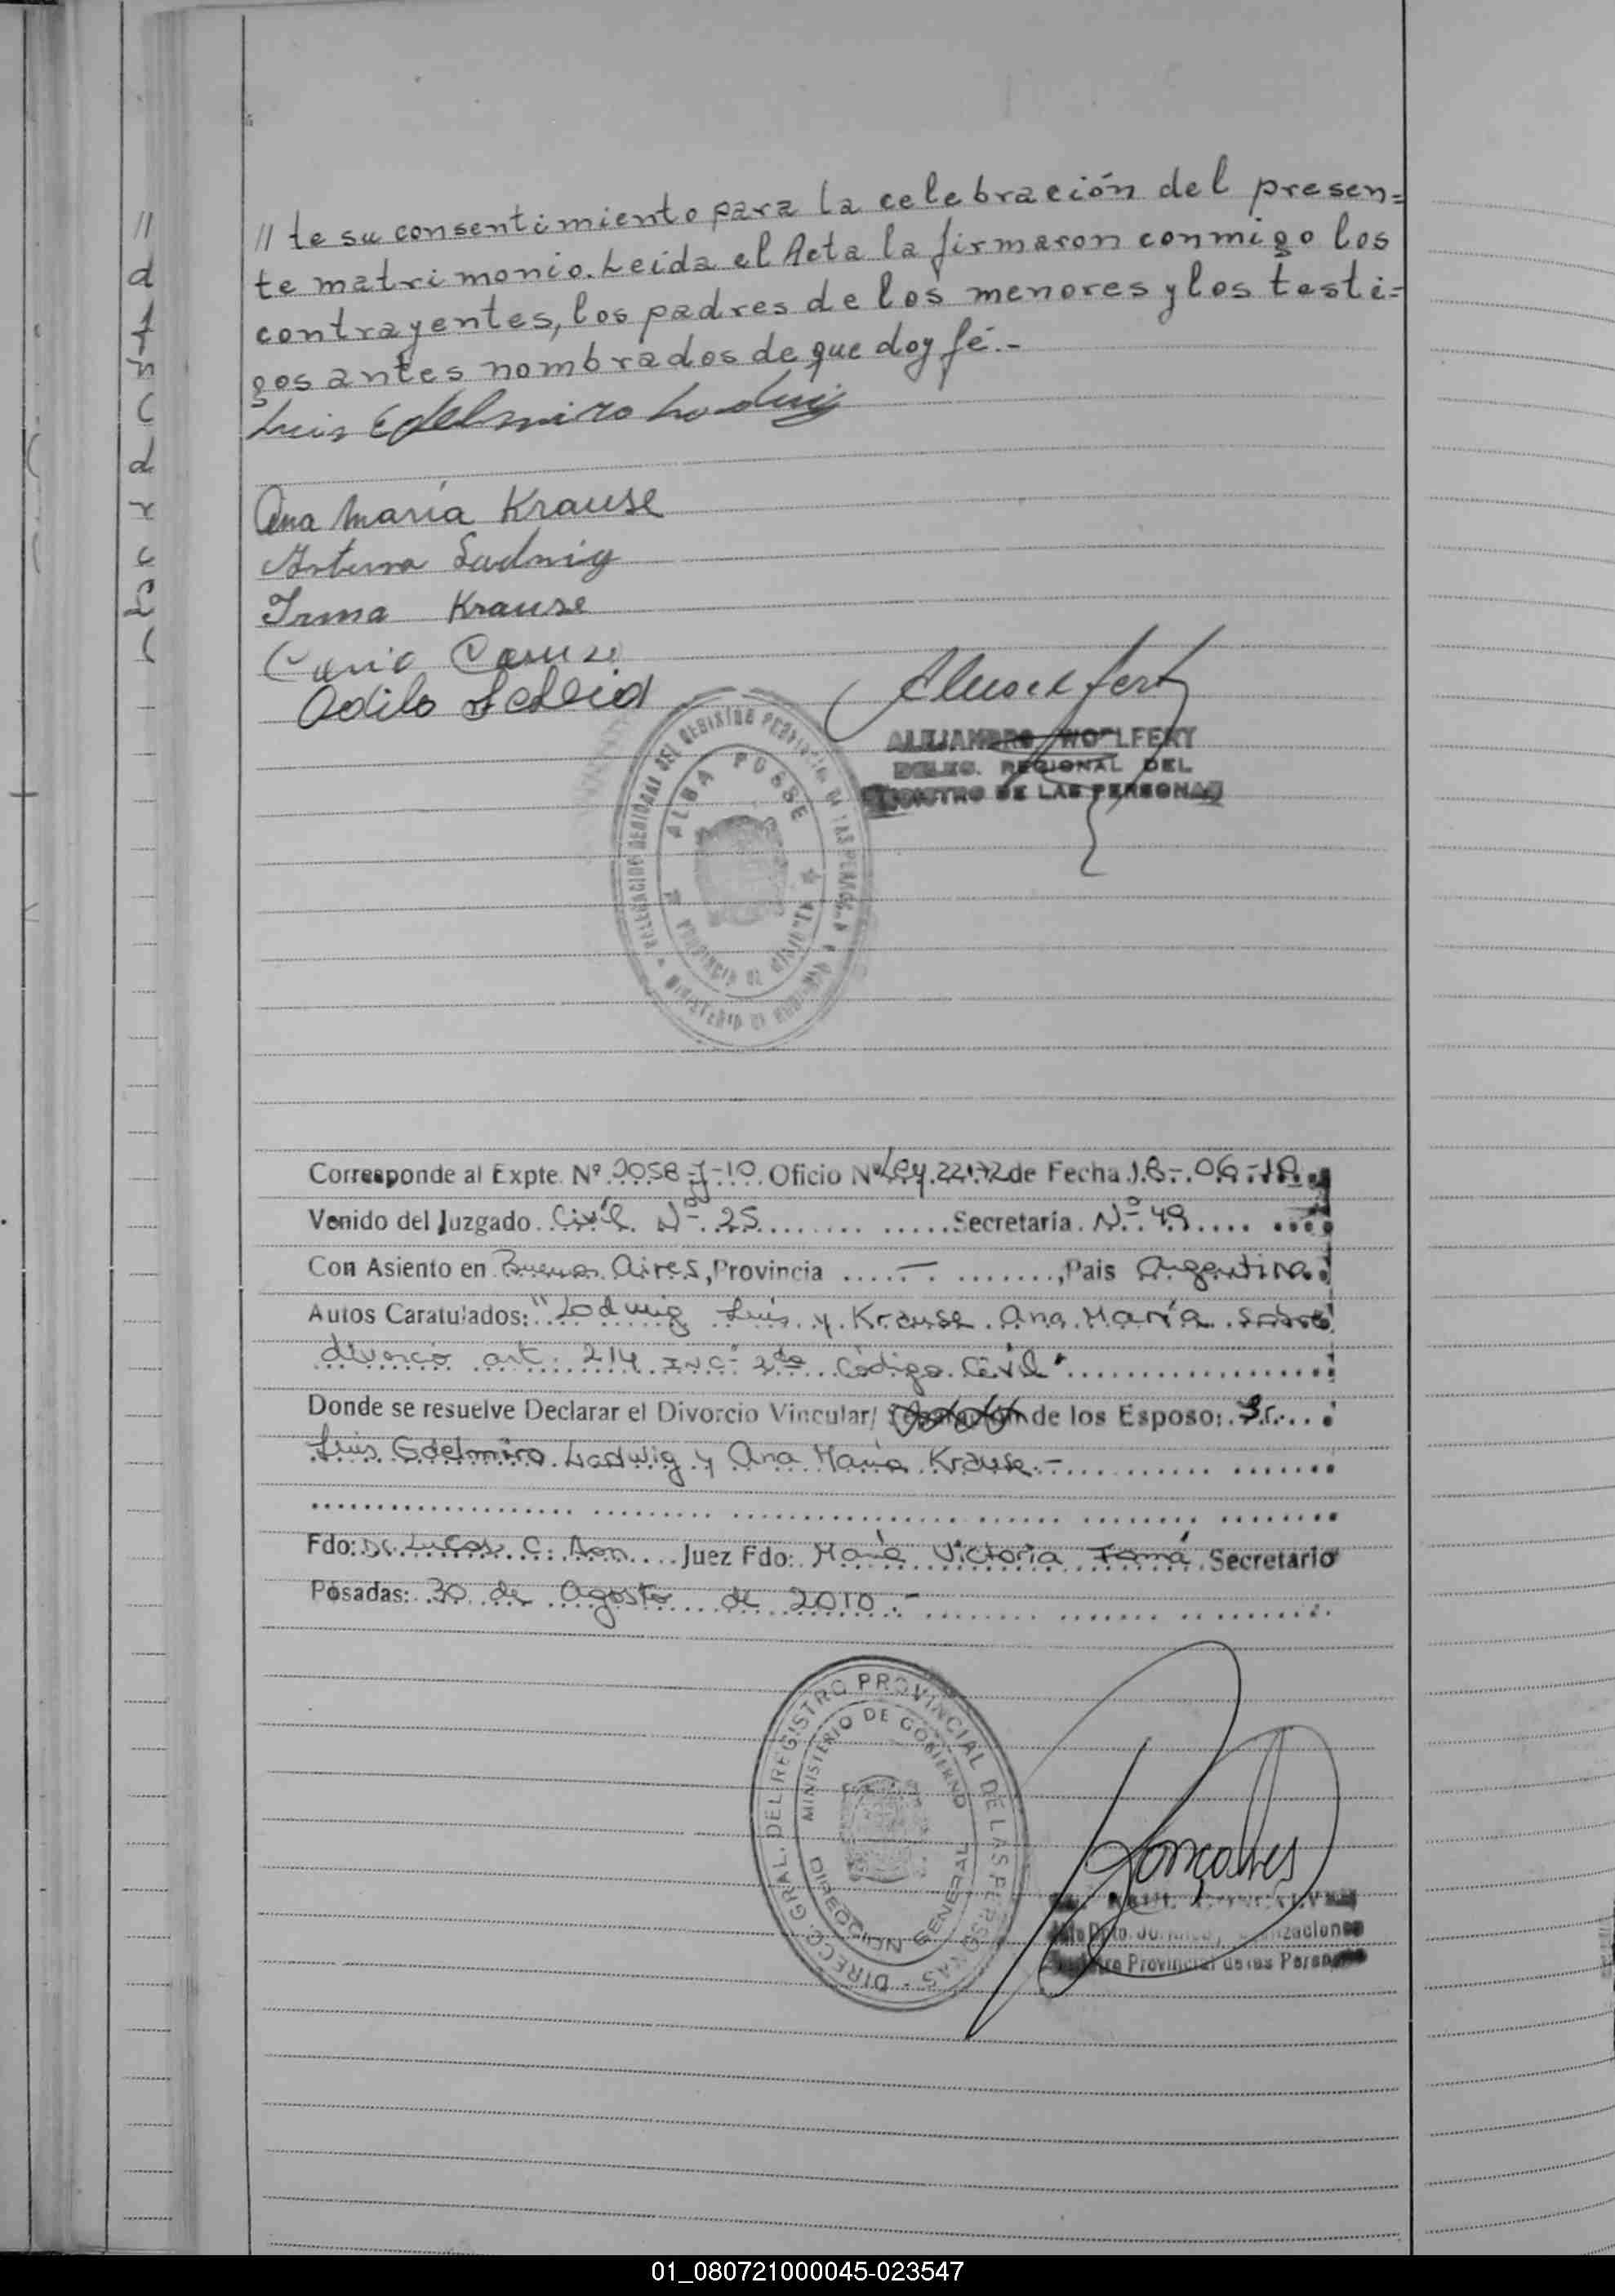 // te su consentimiento para la celebración del presen=
te matrimonio. Leida el Acta la firmaron conmigo los
contrayentes, los padres de los menores y los testi=
gos antes nombrados de que doy fé.-
Luis Edelmiro Lodwig
Ana María Krause
Arturo Ludwig
Irma Krause
Odilo
ALEJANDRO WOLFERT
DELEG. REGIONAL DEL
REGISTRO DE LAS PERSONAS
ALBA POSSE
PROVINCIA DE MISIONES
Corresponde al Expte. Nº 2058-J-10 Oficio Nº Ley 22172 de Fecha 18-06-10
Venido del Juzgado Civil Nº 25 Secretaría Nº 49
Con Asiento en Buenos Aires, Provincia — , Pais Argentina
Autos Caratulados: "Lodwig Luis y Krause Ana María sobre
divorcio art. 214 inc. 2do Código Civil"
Donde se resuelve Declarar el Divorcio Vincular/ Separación de los Esposo: Sr.
Luis Edelmiro Lodwig y Ana María Krause.-
Fdo: Dr. Lucas C. Aon Juez Fdo: María Victoria Famá Secretario
Posadas: 30 de Agosto de 2010.-
DIRECC. GRAL. DEL REGISTRO PROVINCIAL DE LAS PERSONAS
MINISTERIO DE GOBIERNO
DIRECCION GENERAL
Gonçalves
Provincial de las Personas
01_080721000045-023547